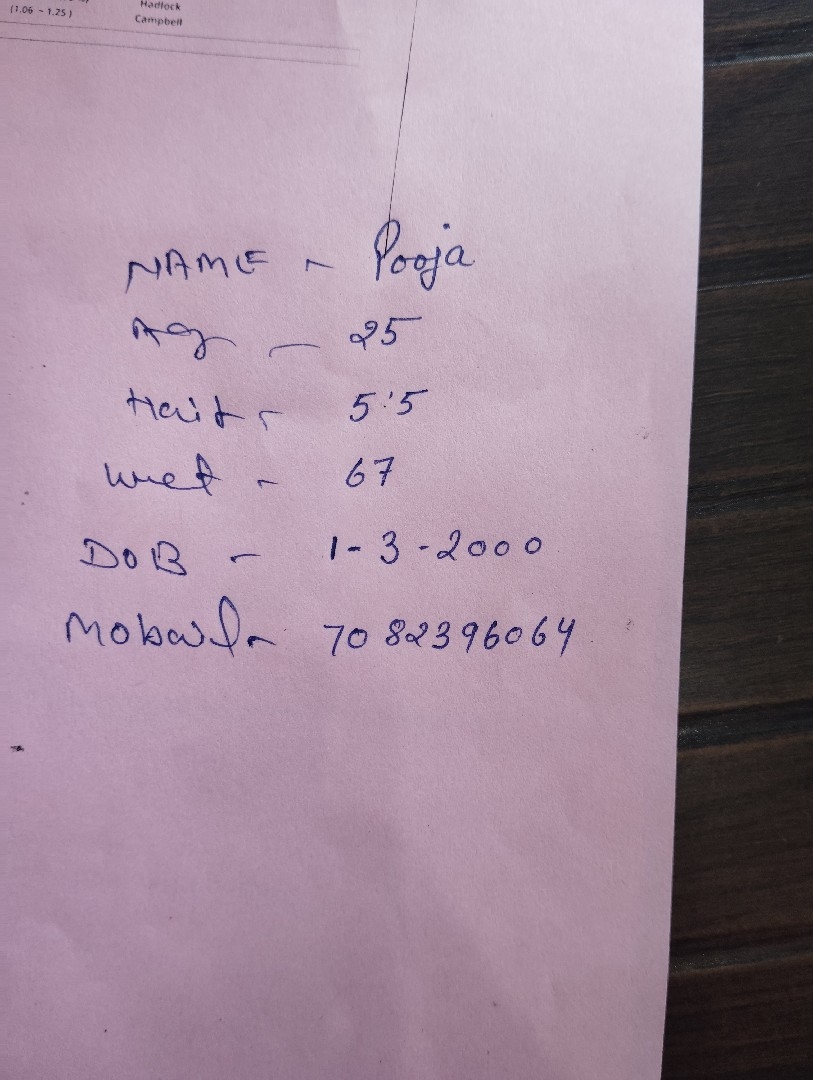 (1.06 - 1.25) Hadlock
Campbell
NAME - Pooja
Ag - 25
Hait - 5'5
Wet - 67
DOB - 1-3-2000
Mobail - 7082396064